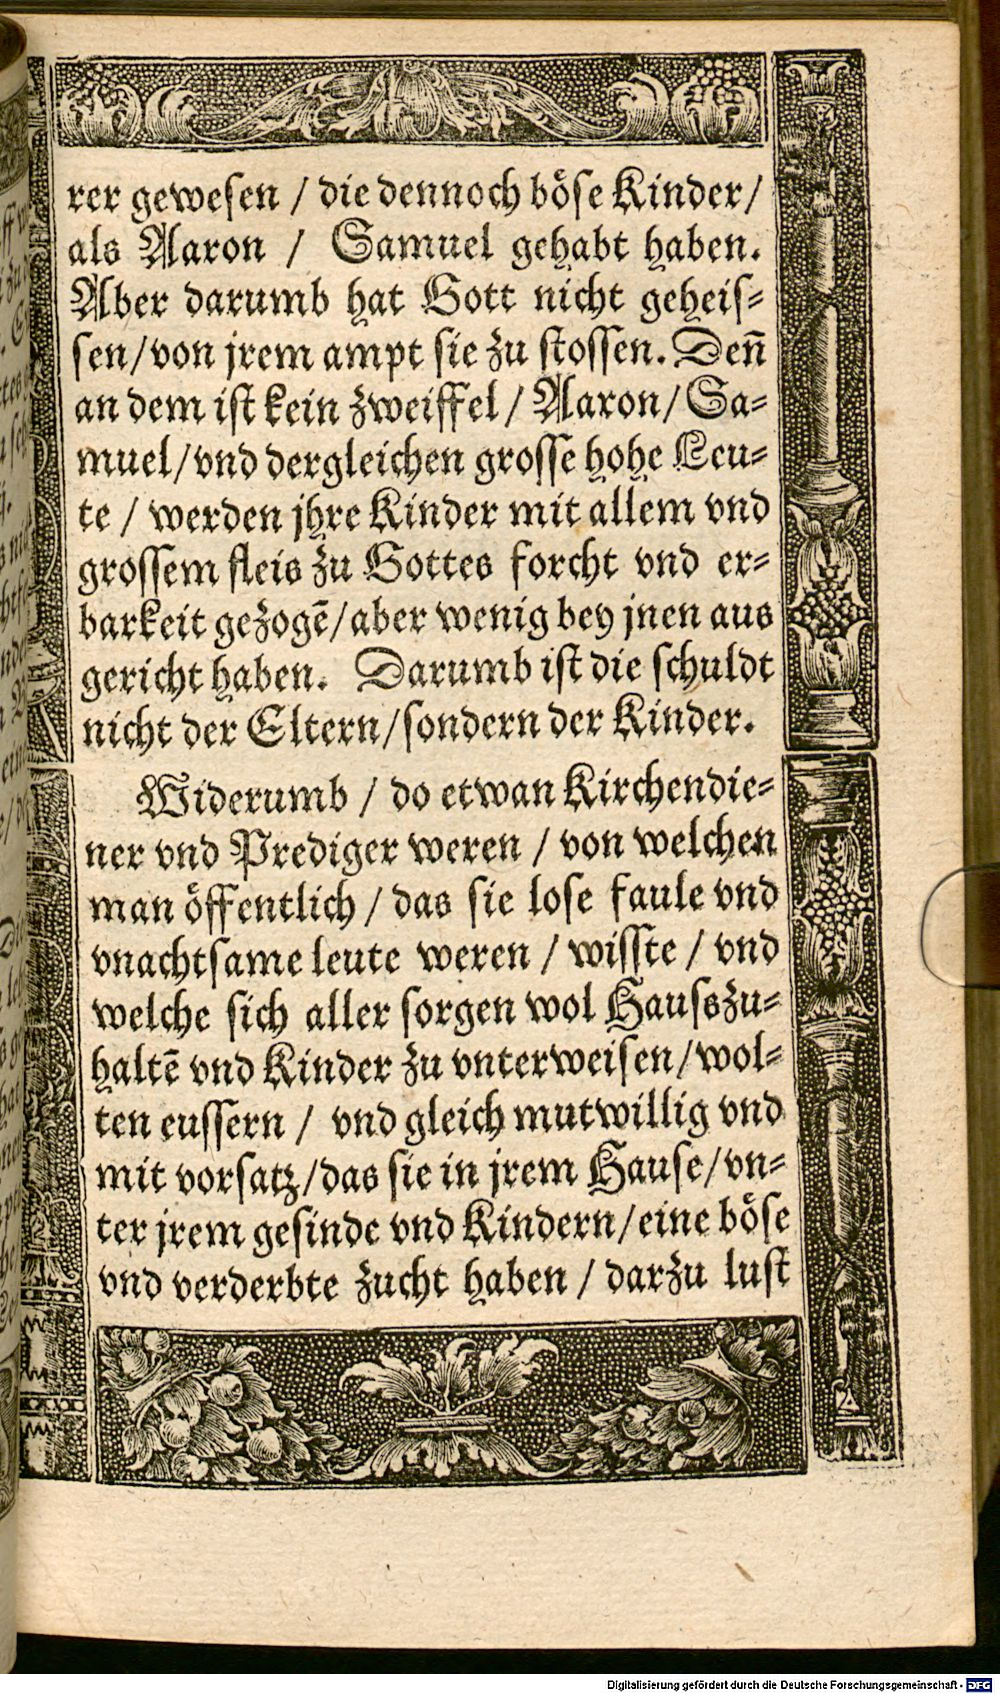 rer gewesen / die dennoch böse Kinder/
als Aaron / Samuel gehabt haben.
Aber darumb hat Gott nicht geheis-
sen/von jrem ampt sie zu stossen. Deñ
an dem ist kein zweiffel / Aaron/ Sa-
muel/vnd dergleichen grosse hohe Leu-
te / werden jhre Kinder mit allem vnd
grossem fleis zu Gottes forcht vnd er-
barkeit gezogẽ/aber wenig bey jnen aus
gericht haben. Darumb ist die schuldt
nicht der Eltern/sondern der Kinder.
Widerumb / do etwan Kirchendie-
ner vnd Prediger weren / von welchen
man öffentlich / das sie lose faule vnd
vnachtsame leute weren / wisste / vnd
welche sich aller sorgen wol Hauszu-
haltẽ vnd Kinder zu vnterweisen/wol-
ten eussern / vnd gleich mutwillig vnd
mit vorsatz/das sie in jrem Hause/vn-
ter jrem gesinde vnd Kindern/eine böse
vnd verderbte zucht haben / darzu lust
Digitalisierung gefördert durch die Deutsche Forschungsgemeinschaft - DFG